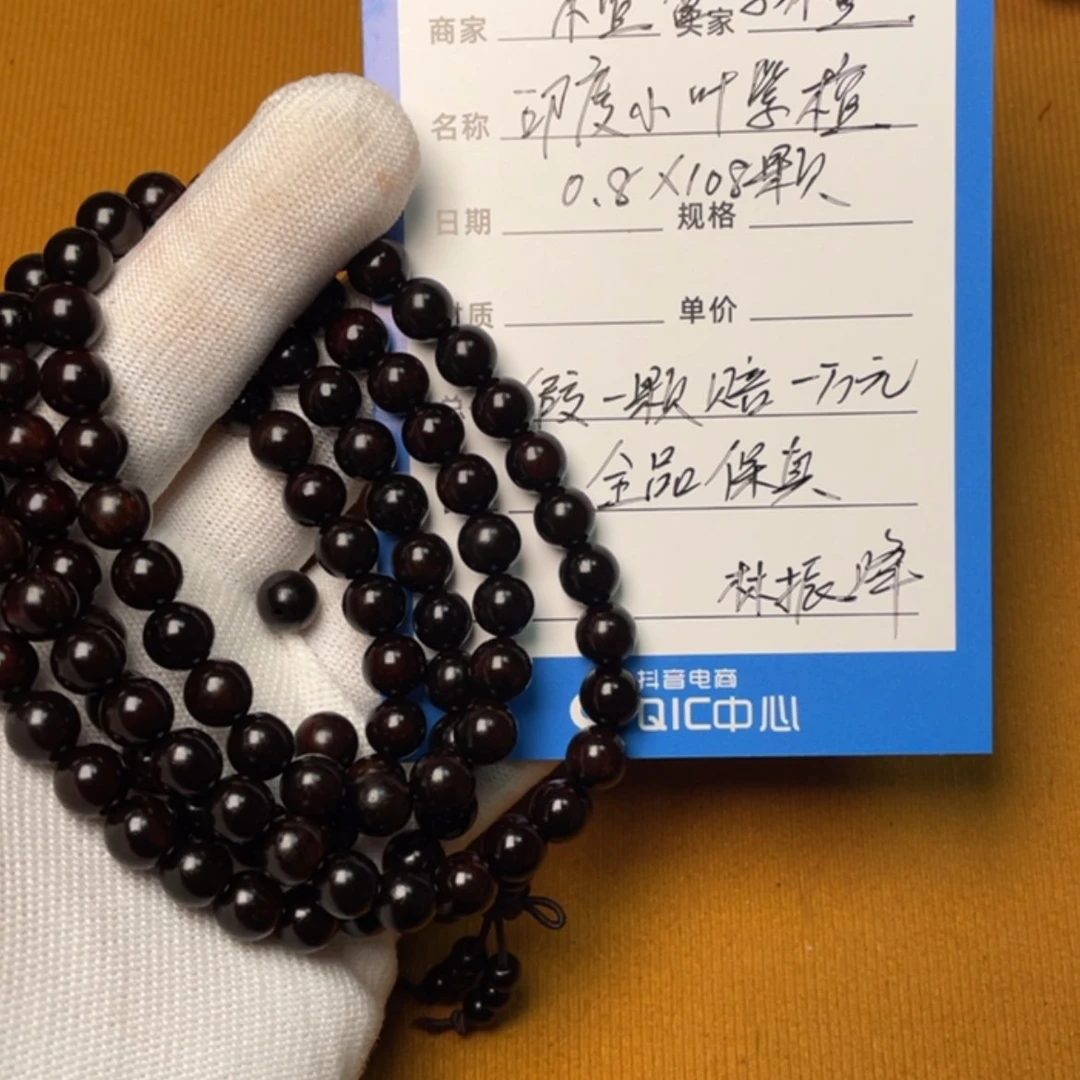 商家 卖家
名称 印度小叶紫檀
0.8×108颗
日期 规格
质 单价
假一颗赔一万元
全品保真
林振峰
抖音电商
QIC中心